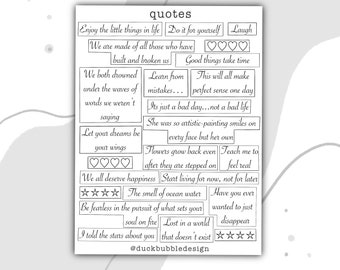 quotes
Enjoy the little things in life
Do it for yourself
Laugh
We are made of all those who have
built and broken us
Good things take time
We both drowned
under the waves of
words we weren't
saying
Learn from
mistakes...
This will all make
perfect sense one day
Its just a bad day...not a bad life
She was so artistic-painting smiles on
every face but her own
Let your dreams be
your wings
Flowers grow back even
after they are stepped on
Teach me to
feel real
We all deserve happiness
Start living for now, not for later
The smell of ocean water
Have you ever
wanted to just
disappear
Be fearless in the pursuit of what sets your
soul on fire
Lost in a world
that doesn't exist
I told the stars about you
@duckbubbledesign